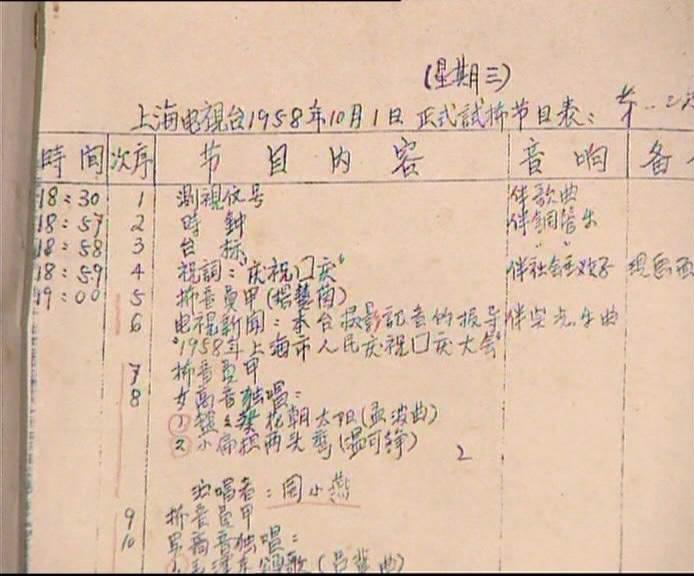 (星期三)
上海电視台1958年10月1日 正式試播节目表:
時間 次序 节目内容 音响 备
18:30 1 測視信号 伴歌曲
18:57 2 時鈡 伴銅管乐
18:58 3 台标 〃 〃
18:59 4 祝詞:"庆祝囗庆" 伴社会主义好
19:00 5 播音員甲
6 电視新聞:本台摄影記者的报导
"1958年上海市人民庆祝囗庆大会"
7 播音員甲
8 女高音独唱:
① 葵花朝太阳(孟波曲)
② 小扁担两头弯
2
演唱者:周小燕
9 播音員甲
10 男高音独唱: